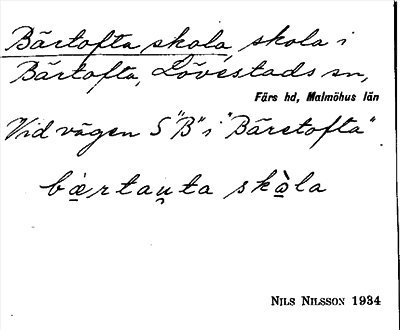 Bärtofta skola, skola i
Bärtofta, Lövestads sn,
Färs hd, Malmöhus län
Vid vägen S "B" i "Bäretofta"
bæ̀rtau̯ta skɑ̀la
NILS NILSSON 1934